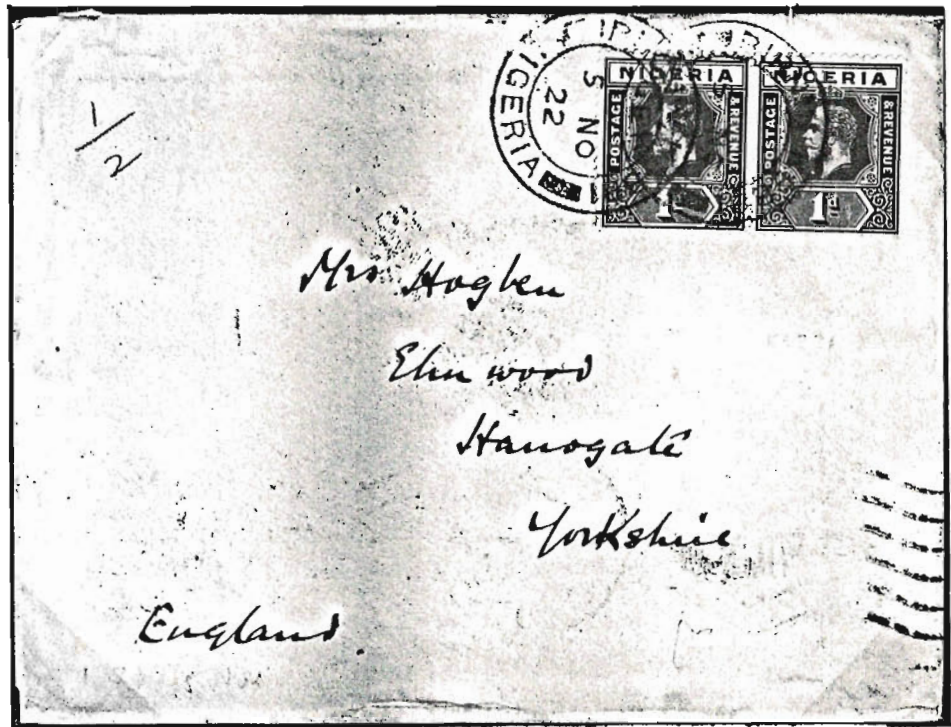 1/2
NIGERIA
5 NO
22
NIGERIA
POSTAGE & REVENUE
1d
NIGERIA
POSTAGE & REVENUE
1d
Mrs Hogben
Elmwood
Harrogate
Yorkshire
England